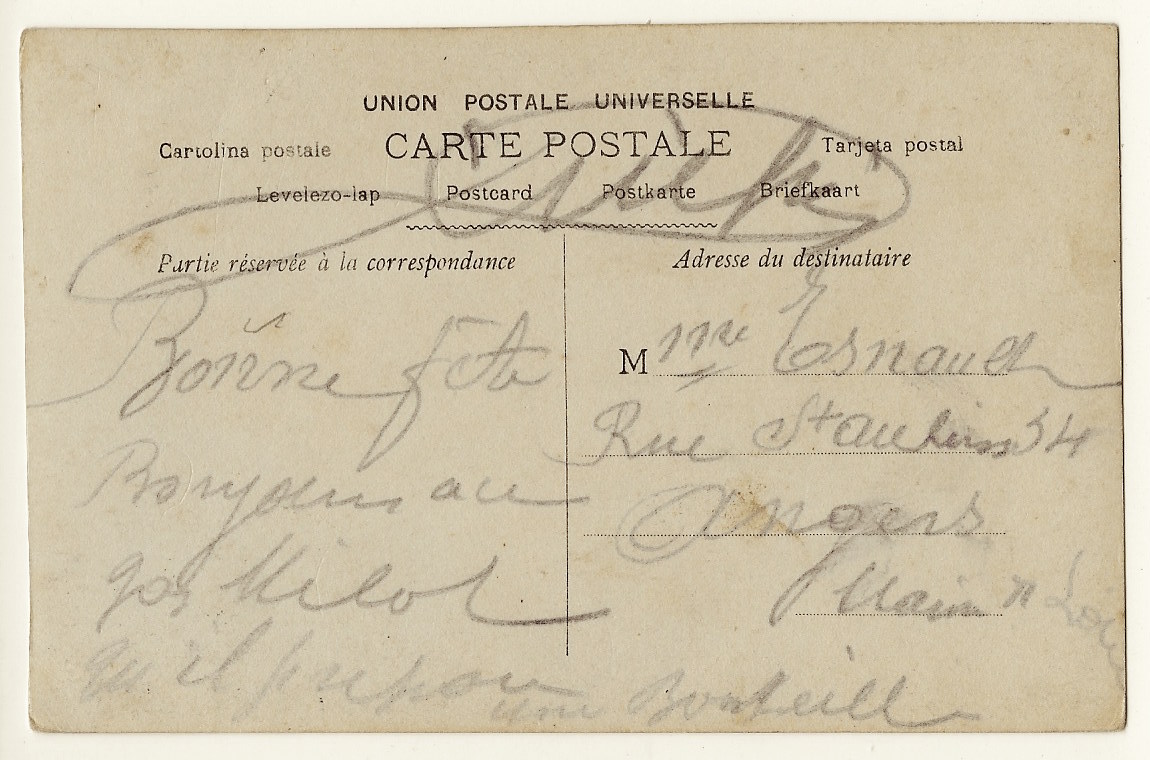 UNION POSTALE UNIVERSELLE
Cartolina postale CARTE POSTALE Tarjeta postal
Levelezo-lap Postcard Postkarte Briefkaart
Partie réservée à la correspondance
Adresse du destinataire
Bonne fête
au
gos Milot
qu'il prepare
une Bouteille
M me Esnault
Rue St aubin 34
Angers
Maine " Loire